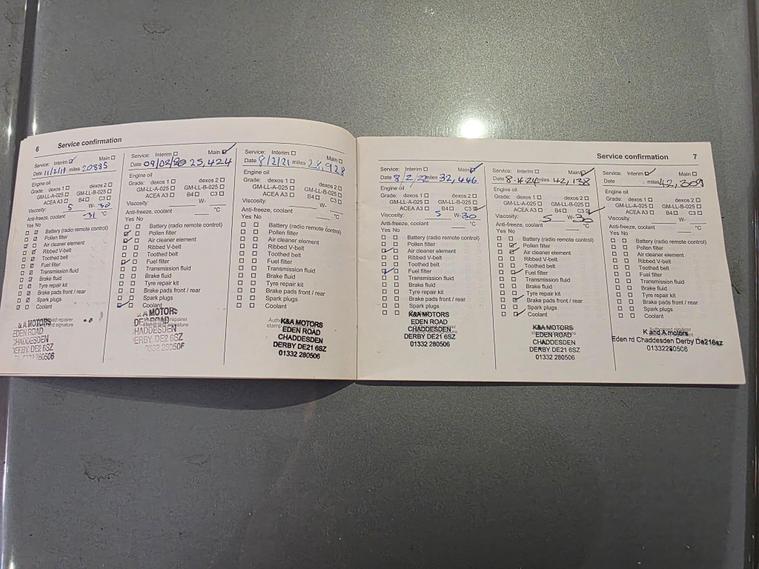 6
Service confirmation
Service: Interim Main
Date 11/2/19 miles 20885
Engine oil
Grade: dexos 1 dexos 2
GM-LL-A-025 GM-LL-B-025
ACEA A3 B4 C3
Viscosity: 5 W- 30
Anti-freeze, coolant -31 °C
Yes No
Battery (radio remote control)
Pollen filter
Air cleaner element
Ribbed V-belt
Toothed belt
Fuel filter
Transmission fluid
Brake fluid
Tyre repair kit
Brake pads front / rear
Spark plugs
Coolant
K&A MOTORS
EDEN ROAD
CHADDESDEN
DERBY DE21 6SZ
01332 280506
Service: Interim Main
Date 09/02/20 25,424
Engine oil
Grade: dexos 1 dexos 2
GM-LL-A-025 GM-LL-B-025
ACEA A3 B4 C3
Viscosity: W-
Anti-freeze, coolant °C
Yes No
Battery (radio remote control)
Pollen filter
Air cleaner element
Ribbed V-belt
Toothed belt
Fuel filter
Transmission fluid
Brake fluid
Tyre repair kit
Brake pads front / rear
Spark plugs
Coolant
K&A MOTORS
EDEN ROAD
CHADDESDEN
DERBY DE2 6SZ
Service: Interim Main
Date 8/2/21 miles 28,928
Engine oil
Grade: dexos 1 dexos 2
GM-LL-A-025 GM-LL-B-025
ACEA A3 B4 C3
Viscosity: W-
Anti-freeze, coolant °C
Yes No
Battery (radio remote control)
Pollen filter
Air cleaner element
Ribbed V-belt
Toothed belt
Fuel filter
Transmission fluid
Brake fluid
Tyre repair kit
Brake pads front / rear
Spark plugs
Coolant
K&A MOTORS
EDEN ROAD
CHADDESDEN
DERBY DE21 6SZ
01332 280506
Service confirmation
7
Service: Interim Main
Date 8/2/22 miles 32,446
Engine oil
Grade: dexos 1 dexos 2
GM-LL-A-025 GM-LL-B-025
ACEA A3 B4 C3
Viscosity: 5 W-30
Anti-freeze, coolant °C
Yes No
Battery (radio remote control)
Pollen filter
Air cleaner element
Ribbed V-belt
Toothed belt
Fuel filter
Transmission fluid
Brake fluid
Tyre repair kit
Brake pads front / rear
Spark plugs
Coolant
K&A MOTORS
EDEN ROAD
CHADDESDEN
DERBY DE21 6SZ
01332 280506
Service: Interim Main
Date 8.4.24 miles 42,138
Engine oil
Grade: dexos 1 dexos 2
GM-LL-A-025 GM-LL-B-025
ACEA A3 B4 C3
Viscosity: 5 W-30
Anti-freeze, coolant °C
Yes No
Battery (radio remote control)
Pollen filter
Air cleaner element
Ribbed V-belt
Toothed belt
Fuel filter
Transmission fluid
Brake fluid
Tyre repair kit
Brake pads front / rear
Spark plugs
Coolant
K&A MOTORS
EDEN ROAD
CHADDESDEN
DERBY DE21 6SZ
01332 280506
Service: Interim Main
Date miles 42,309
Engine oil
Grade: dexos 1 dexos 2
GM-LL-A-025 GM-LL-B-025
ACEA A3 B4 C3
Viscosity: W-
Anti-freeze, coolant °C
Yes No
Battery (radio remote control)
Pollen filter
Air cleaner element
Ribbed V-belt
Toothed belt
Fuel filter
Transmission fluid
Brake fluid
Tyre repair kit
Brake pads front / rear
Spark plugs
Coolant
K and A motors
Eden rd Chaddesden Derby De216sz
01332280506